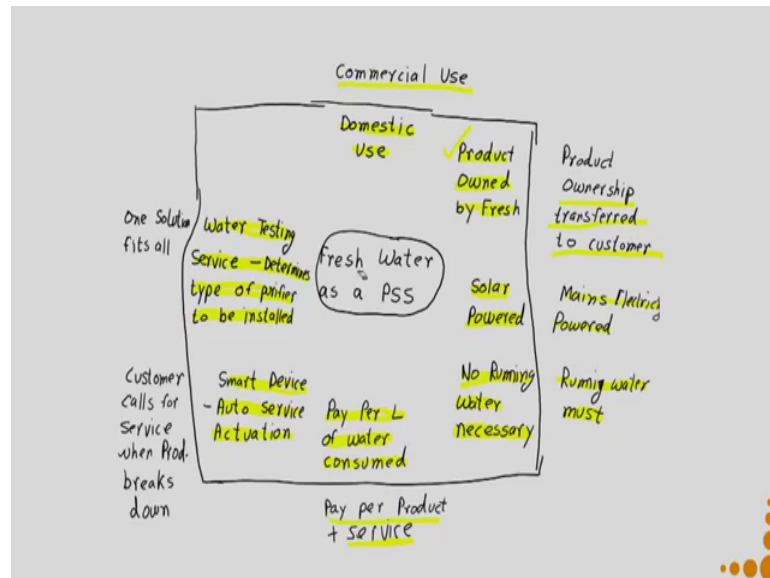 Commercial Use
Domestic
Use
Product
Owned
by Fresh
Product
Ownership
transferred
to customer
One Solution
fits all
Water Testing
Service - Determines
type of purifier
to be installed
Fresh Water
as a PSS
Solar
Powered
Mains Electricity
Powered
Customer
calls for
service
when Prod.
breaks
down
Smart Device
- Auto Service
Actuation
Pay Per L
of water
consumed
No Runing
Water
necessary
Runnig water
must
Pay per Product
+ Service